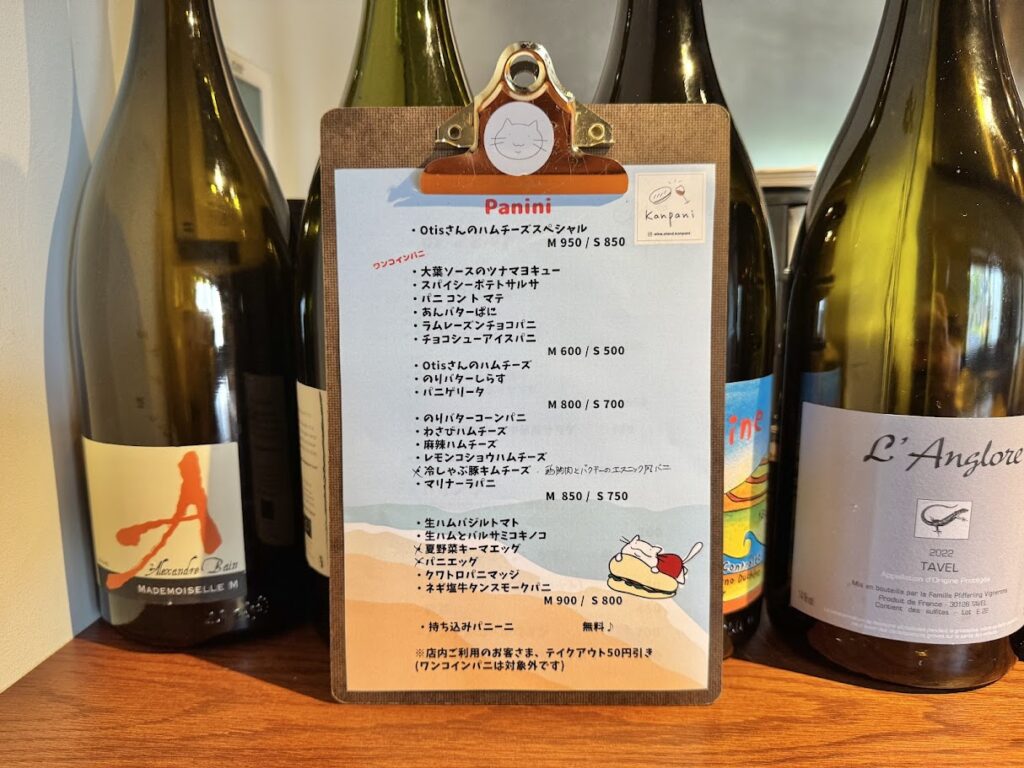 Panini
Kanpani
wine.stand.kanpani
・Otisさんのハムチーズスペシャル
M 950 / S 850
ワンコインパニ
・大葉ソースのツナマヨキュー
・スパイシーポテトサルサ
・パニ コン ト マテ
・あんバターぱに
・ラムレーズンチョコパニ
・チョコシューアイスパニ
M 600 / S 500
・Otisさんのハムチーズ
・のりバターしらす
・パニゲリータ
M 800 / S 700
・のりバターコーンパニ
・わさびハムチーズ
・麻辣ハムチーズ
・レモンコショウハムチーズ
・冷しゃぶ豚キムチーズ ・鶏胸肉とパクチーのエスニック風パニ
・マリナーラパニ
M 850 / S 750
・生ハムバジルトマト
・生ハムとバルサミコキノコ
・夏野菜キーマエッグ
・パニエッグ
・クワトロパニマッジ
・ネギ塩牛タンスモークパニ
M 900 / S 800
・持ち込みパニーニ 無料♪
※店内ご利用のお客さま、テイクアウト50円引き
(ワンコインパニは対象外です)
A
Alexandre Bain
MADEMOISELLE M
ine
L'Anglore
2022
TAVEL
Appellation d'Origine Protégée
Mis en bouteille par la Famille Pfifferling Vigneron
Produit de France - 30126 TAVEL
Contient des sulfites - Lot E 2E